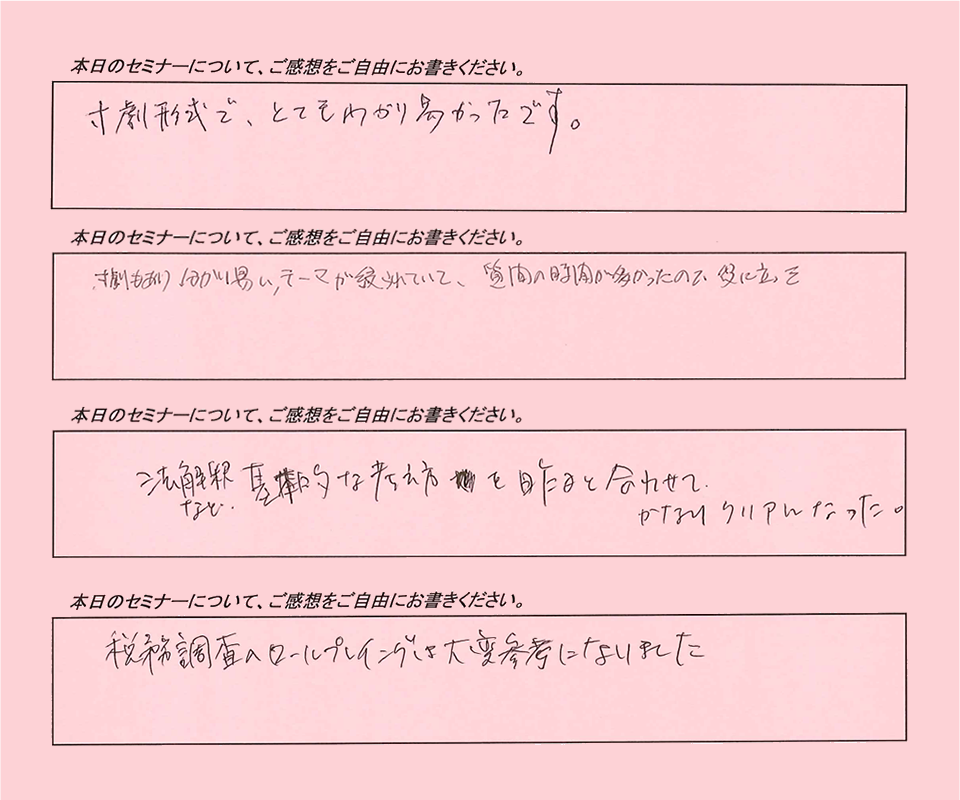 本日のセミナーについて、ご感想をご自由にお書きください。
寸劇形式で、とてもわかり易かったです。
本日のセミナーについて、ご感想をご自由にお書きください。
寸劇もあり分かり易い、テーマが絞られていて、質問の時間が多かったので役に立っ
本日のセミナーについて、ご感想をご自由にお書きください。
法解釈 基本的な考え方 を昨日と合わせて
など. かなりクリアになった。
本日のセミナーについて、ご感想をご自由にお書きください。
税務調査のロールプレイングは大変参考になりました